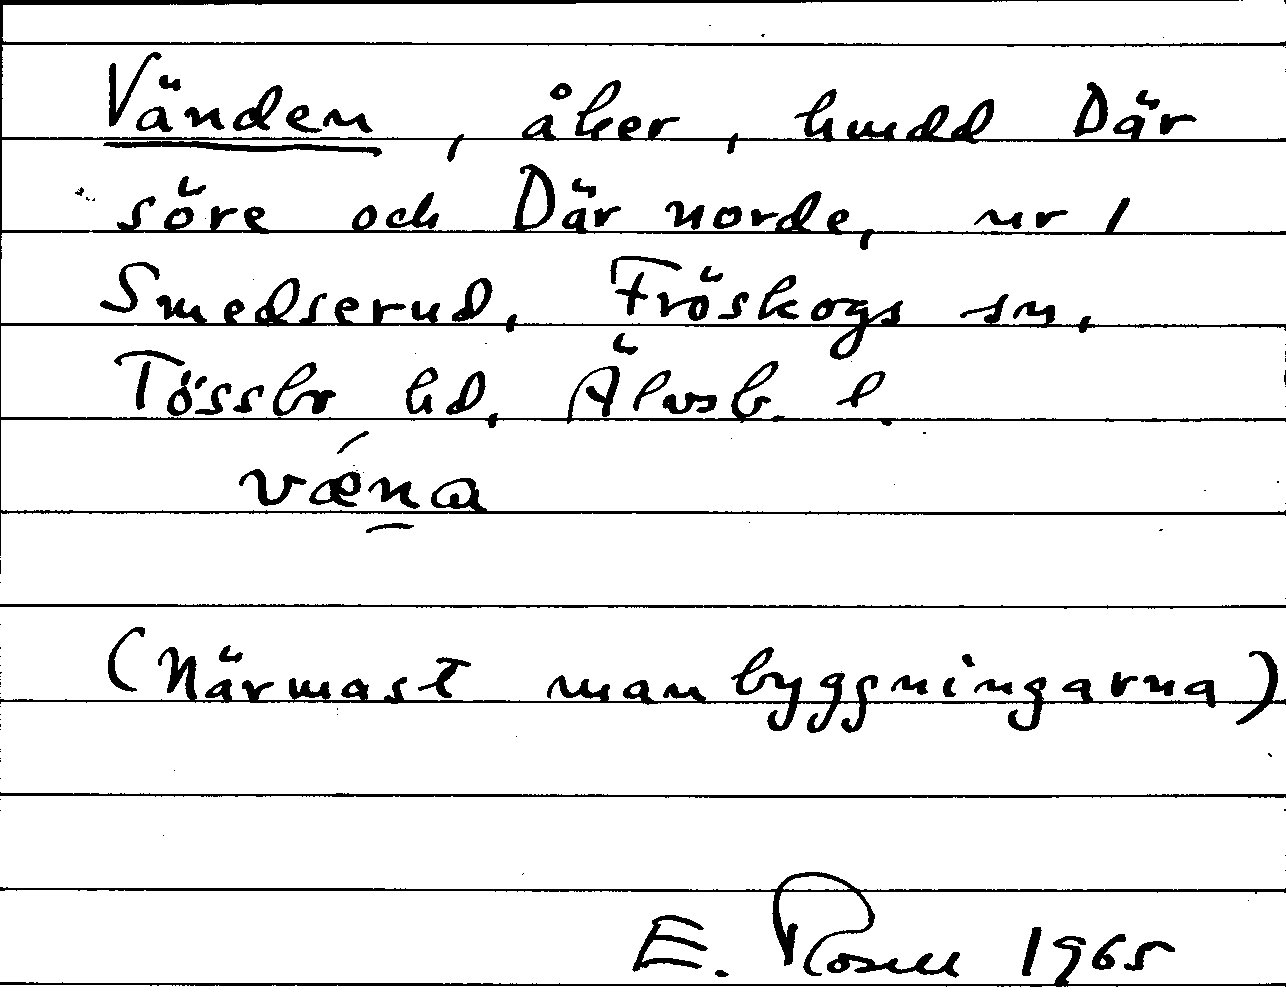 Vänden, åker, hmdd Där
söre och Där norde, nr 1
Smedserud, Fröskogs sn,
Tössbo hd, Älvsb. l.
vǽna
(Närmast manbyggningarna)
E. Rosell 1965